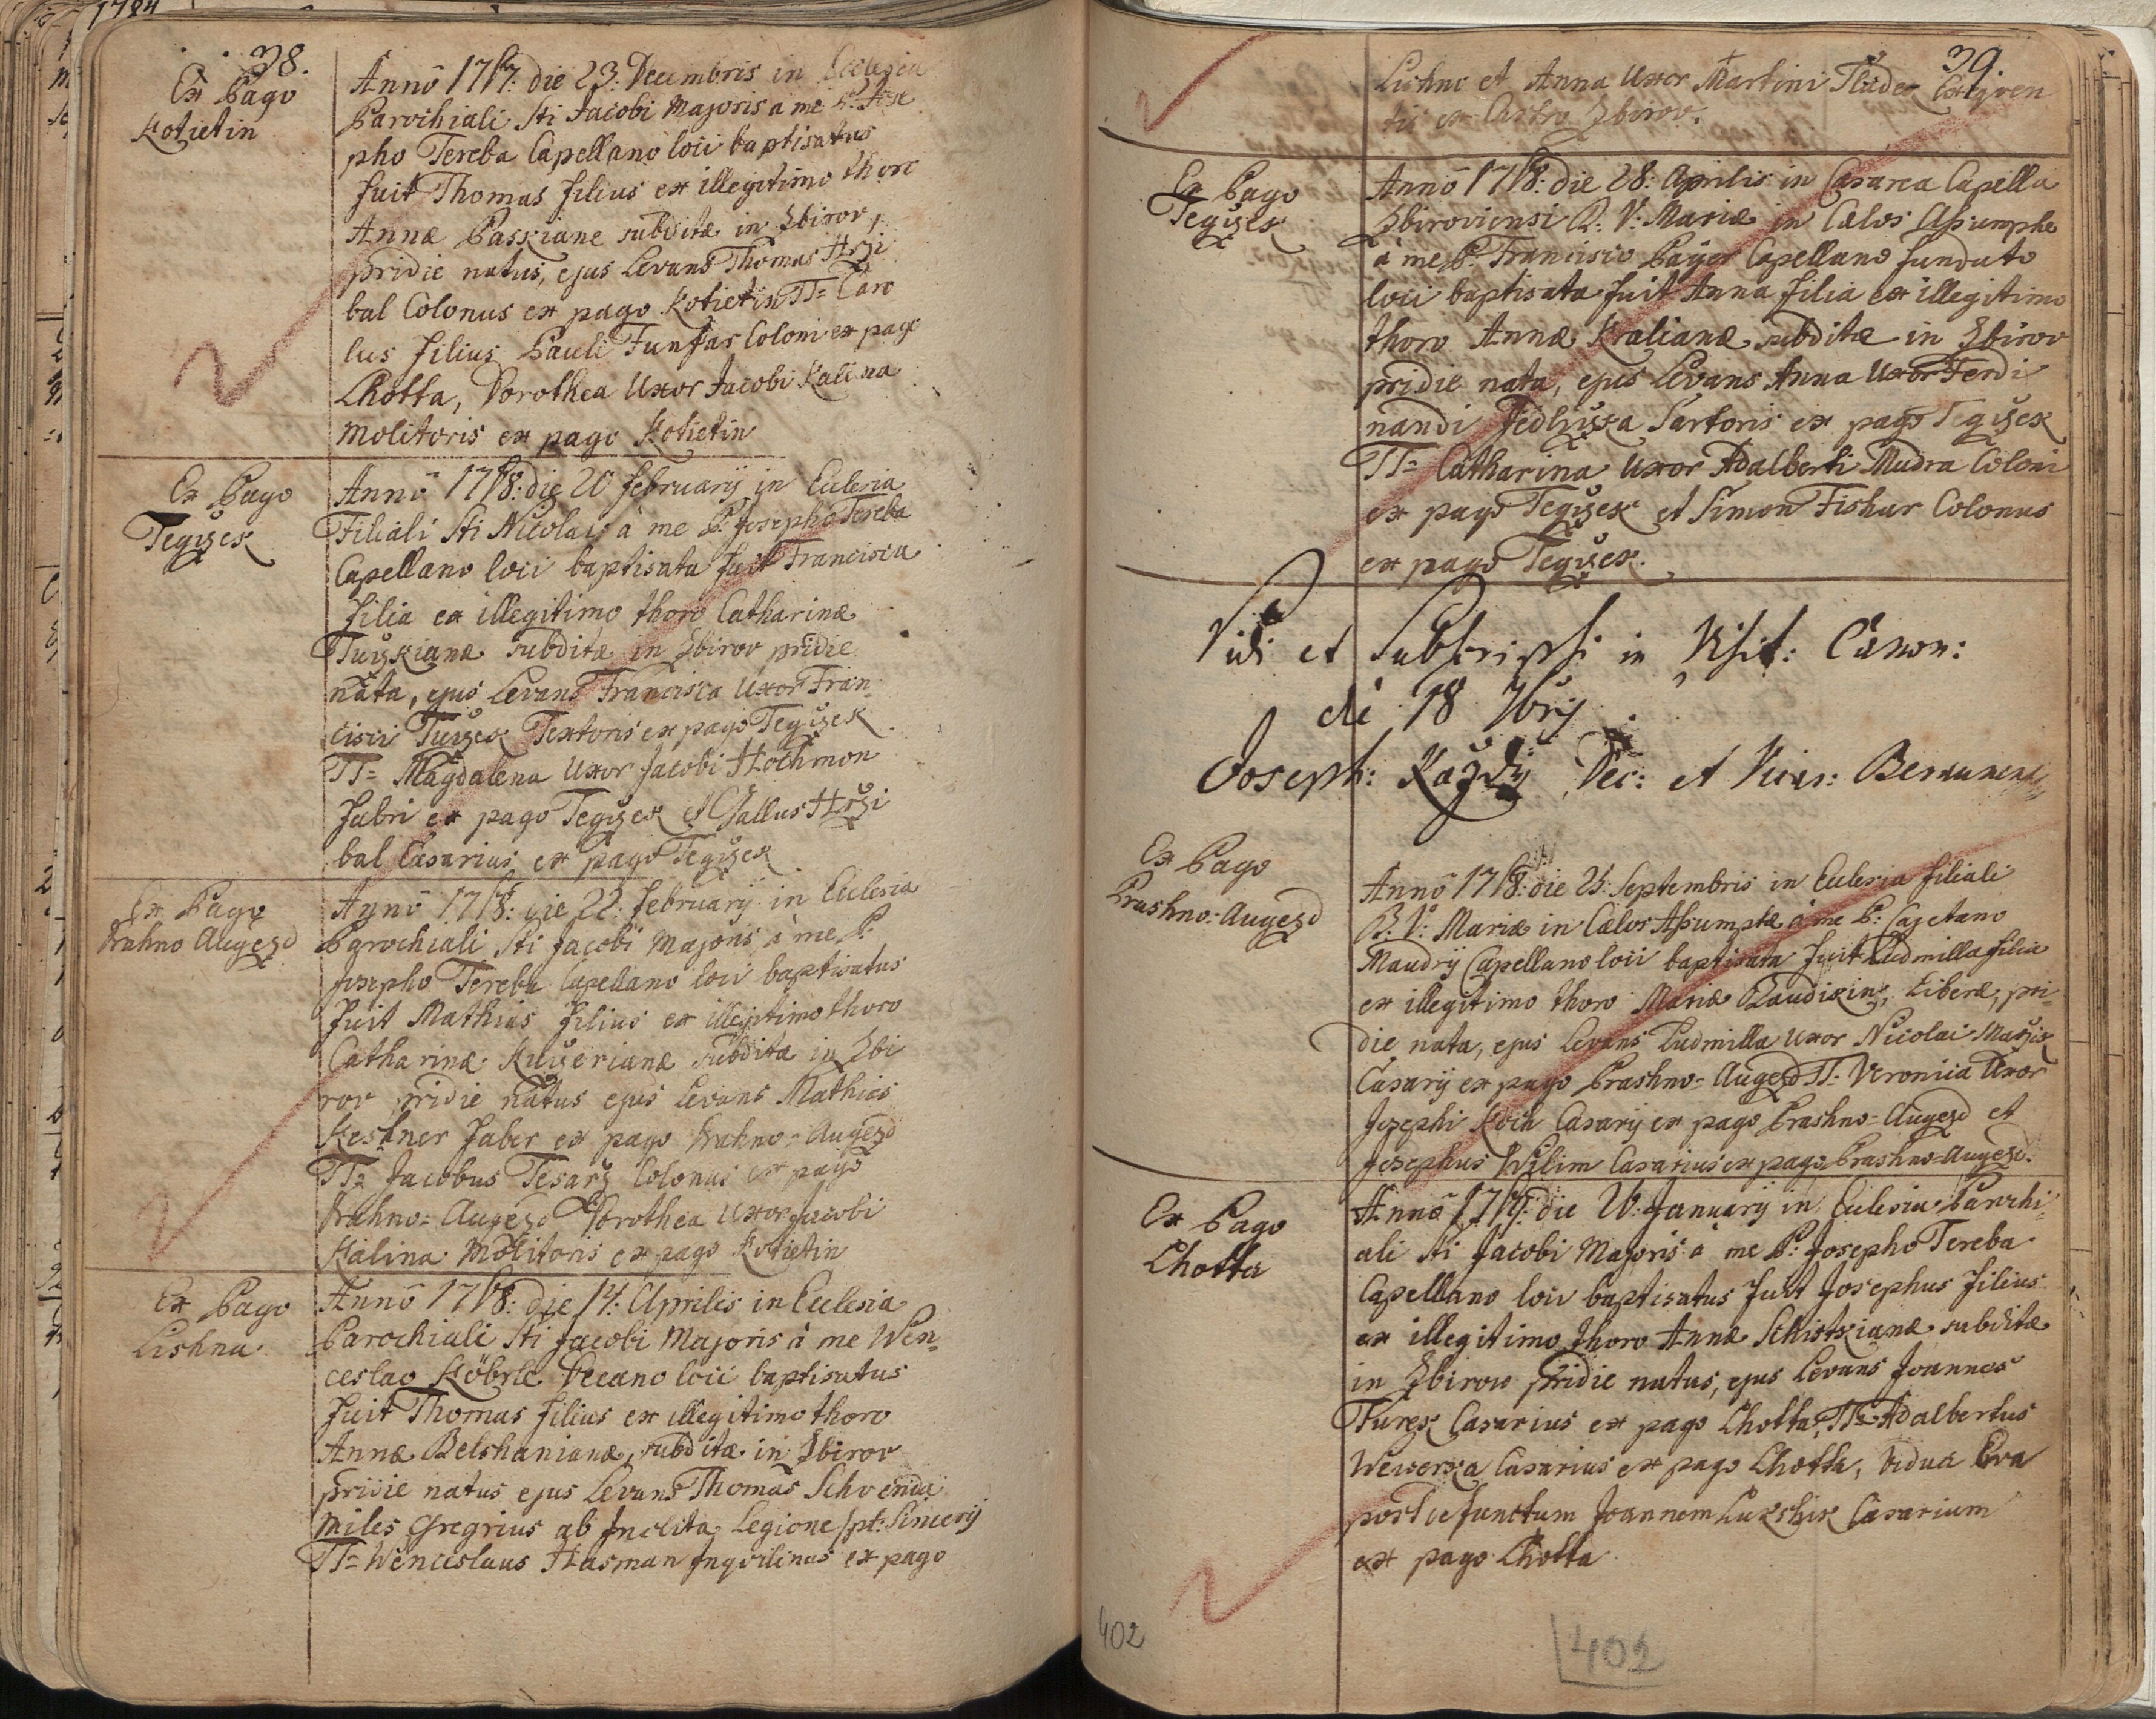 1784
38.
Ex Pago
Kotietin
Anno 1767: die 23: Decembris in Ecclesia
Parochiali Sti Jacobi Majoris à me P: Jose
pho Tereba Capellano loci baptisatus
fuit Thomas filius ex illegitimo thoro
Annæ Passiane subditæ in Zbirov,
pridie natus, ejus Levans Thomas Hrzi
bal Colonus ex pago Kotietin TT= Caro
lus filius Pauli Funfar Coloni ex pago
Lhotta, Dorothea Uxor Jacobi Kalina
Molitoris ex pago Kotietin
Ex Pago
Tegizek
Anno 1768: die 20 February in Eclesia
Filiali Sti Nicolai à me P: Josepho Tereba
Capellano loci baptisata fuit Francisca
filia ex illegitimo thoro Catharinæ
Tuizkianæ subditæ in Zbirov pridie
nata, ejus Levans Francisca Uxor Fran-
cisci Tuizek Textoris ex pago Tegizek
TT= Magdalena Uxor Jacobi Hochmon
fabri ex pago Tegizek et Gallus Hrzi
bal Casarius ex pago Tegizek
Ex Pago
Prahno Augezd
Anno 1768: die 22: February in Eclesia
Parochiali Sti Jacobi Majoris à me P:
Josepho Tereba Capellano loci baptisatus
fuit Mathias filius ex illegitimo thoro
Catharinæ Kuzerianæ subditæ in Zbi
rov pridie natus ejus Levans Mathias
Keshner faber ex pago Prahno-Augezd
TT= Jacobus Tesarz Colonus ex pago
Prahno=Augezd Dorothea Uxor Jacobi
Kalina Molitoris ex pago Kotietin
Ex Pago
Lishna
Anno 1768: die 14: Aprilis in Eclesia
Parochiali Sti Jacobi Majoris à me Wen-
ceslao Köbrle Decano loci baptisatus
fuit Thomas filius ex illegitimo thoro
Annæ Belshanianæ, subditæ in Zbirov
pridie natus ejus Levans Thomas Schvenda
miles Gregrius ab Inclita Legione pt: Sincerÿ
TT= Wenceslaus Hasman Inqvilinus ex pago
39.
Lishna et Anna Uxor Martini
tis ex Castro Zbirov.
Ex Pago
Tegizek
Anno 1768: die 28: Aprilis in Cæsarea Capella
Zbiroviensi B: V: Mariæ in Cælos Assumptæ
à me P: Francisco Payer Capellano fundato
loci baptisata fuit Anna filia ex illegitimo
thoro Annæ Kralianæ subditæ in Zbirov
pridie nata, ejus Levans Anna Uxor Ferdi
nandi Jedlizka Sartoris ex pago Tegizek
TT= Catharina Uxor Adalberti Mudra Coloni
ex pago Tegizek et Simon Fishar Colonus
ex pago Tegizek.
Vidi et Subscripsi in Visit: Canon:
die 18 7bris
Joseph: Kazdÿ Dec: et Vicar: Beraunens
Ex Pago
Prashno=Augezd
Anno 1768: die 25: Septembris in Eclesia filiali
B: V: Mariæ in Cælos Assumptæ à me P: Cajetano
Maudry Capellano loci baptisata fuit Ludmilla filia
ex illegitimo thoro Mariæ Laudikin, Liberæ, pri-
die nata, ejus Levans Ludmilla Uxor Nicolai Maržik
Casarÿ ex pago Prashno=Augezd TT= Veronica Uxor
Josephi Koch Casarÿ ex pago Prashno-Augezd et
Josephus Wilim Casarius ex pago Prashno=Augezd.
Ex Pago
Lhotta
die 20: January in Eclesia Parochi-
ali Sti Jacobi Majoris à me P: Josepho Tereba
Capellano loci baptisatus fuit Josephus filius
ex illegitimo thoro Annæ Schistkianæ subditæ
in Zbirow pridie natus, ejus Levans Joannes
Turek Casarius ex pago Lhotta, TT= Adalbertus
Wewerka Casarius ex pago Lhotta, Vidua Eva
post defunctum Joannem Lukshik Casarium
ex pago Lhotta
402
402